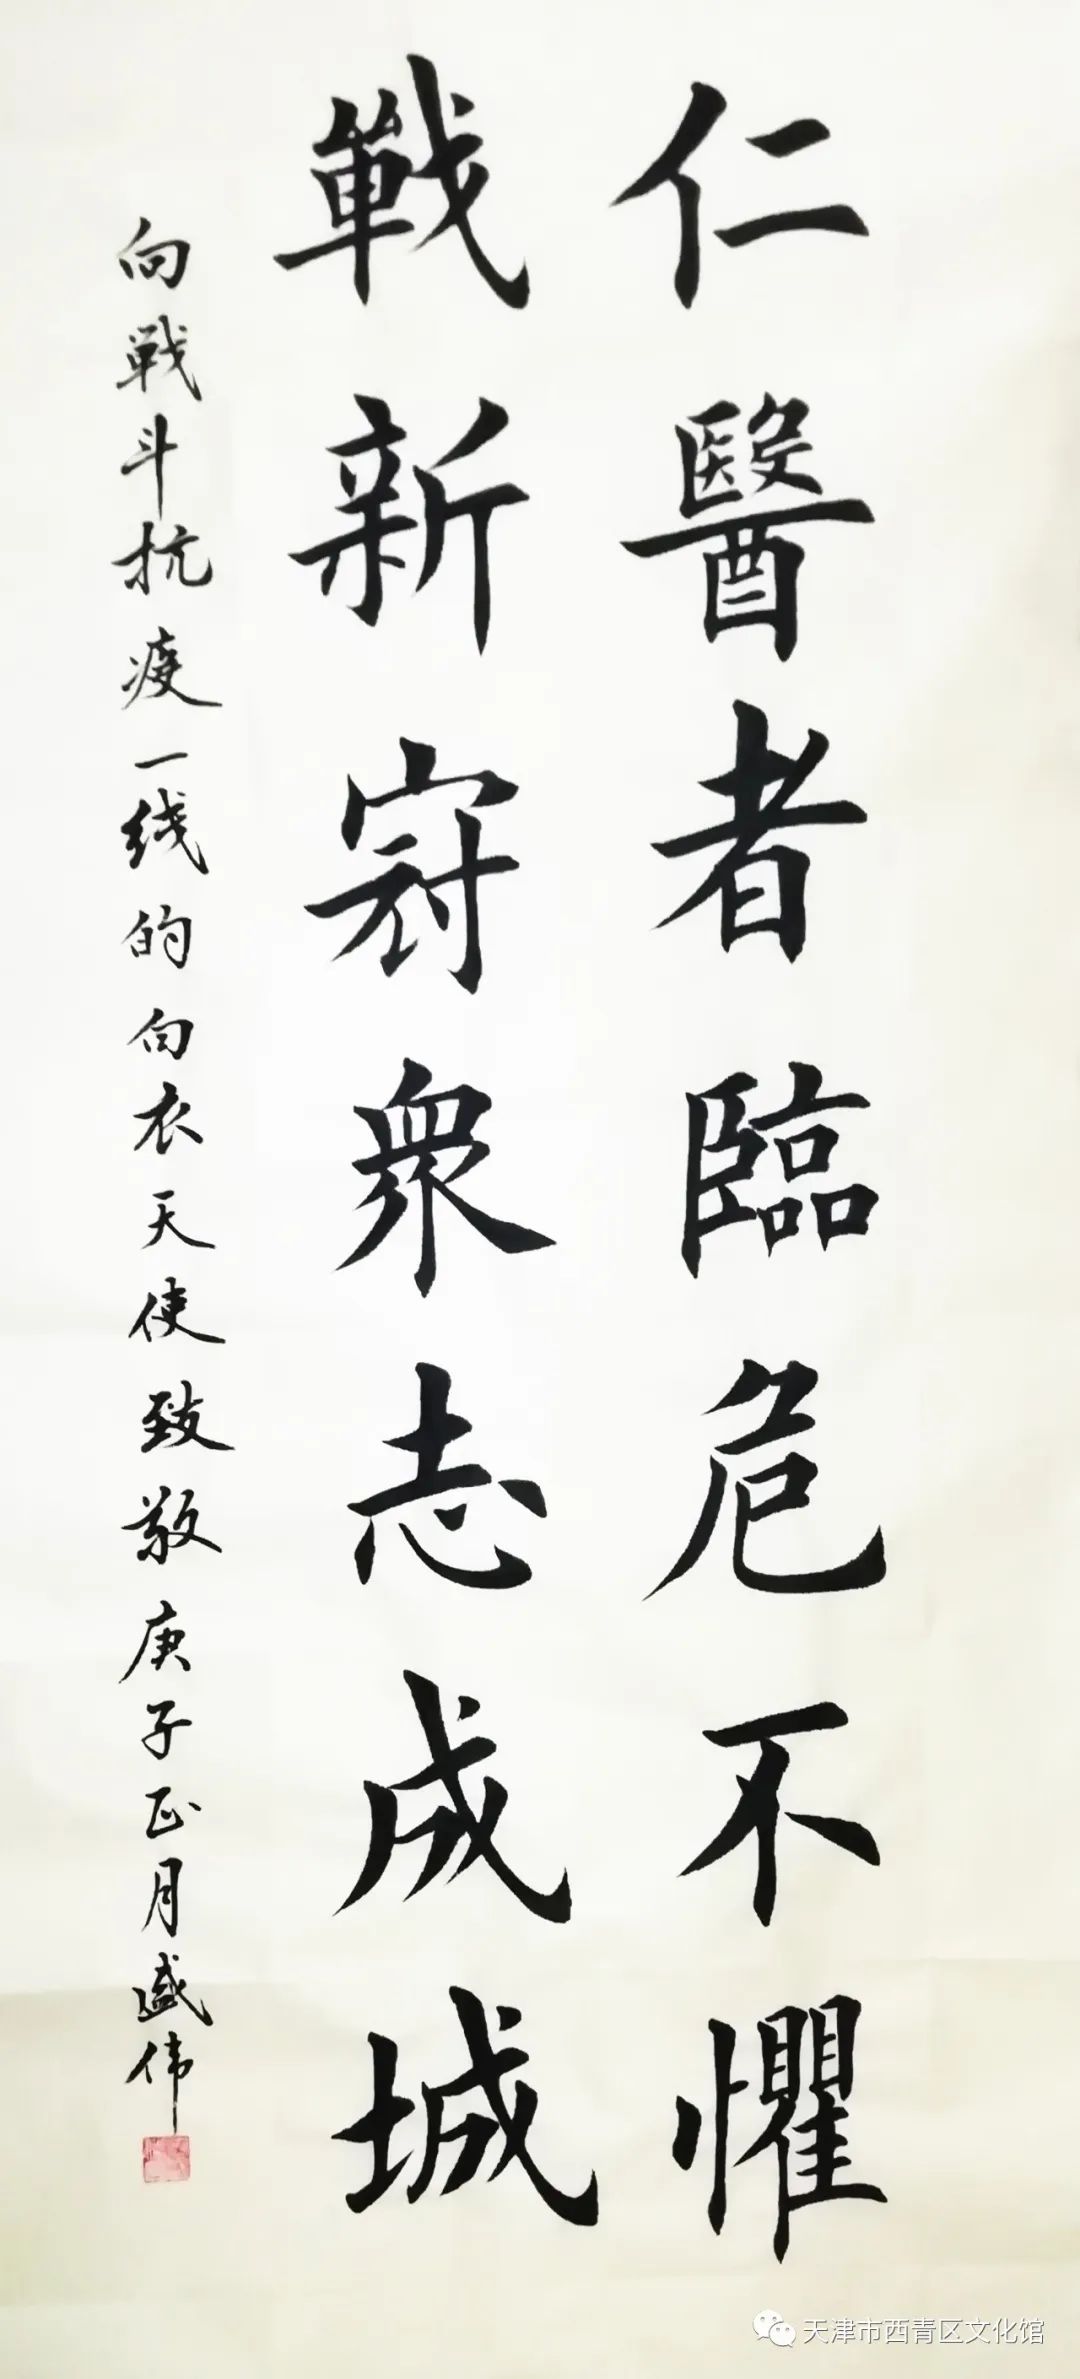 仁醫者臨危不懼
戰新冠衆志成城
向戰斗抗疫一线的白衣天使致敬庚子正月盛伟
天津市西青区文化馆